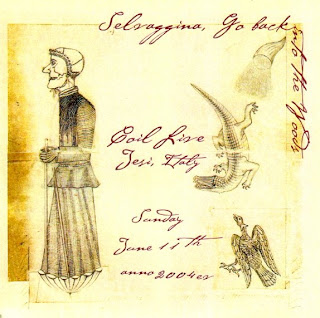 Selvaggina, Go back
into the Woods
Coil Live
Jesi, Italy
Sunday
June 11th
anno 2004 ev